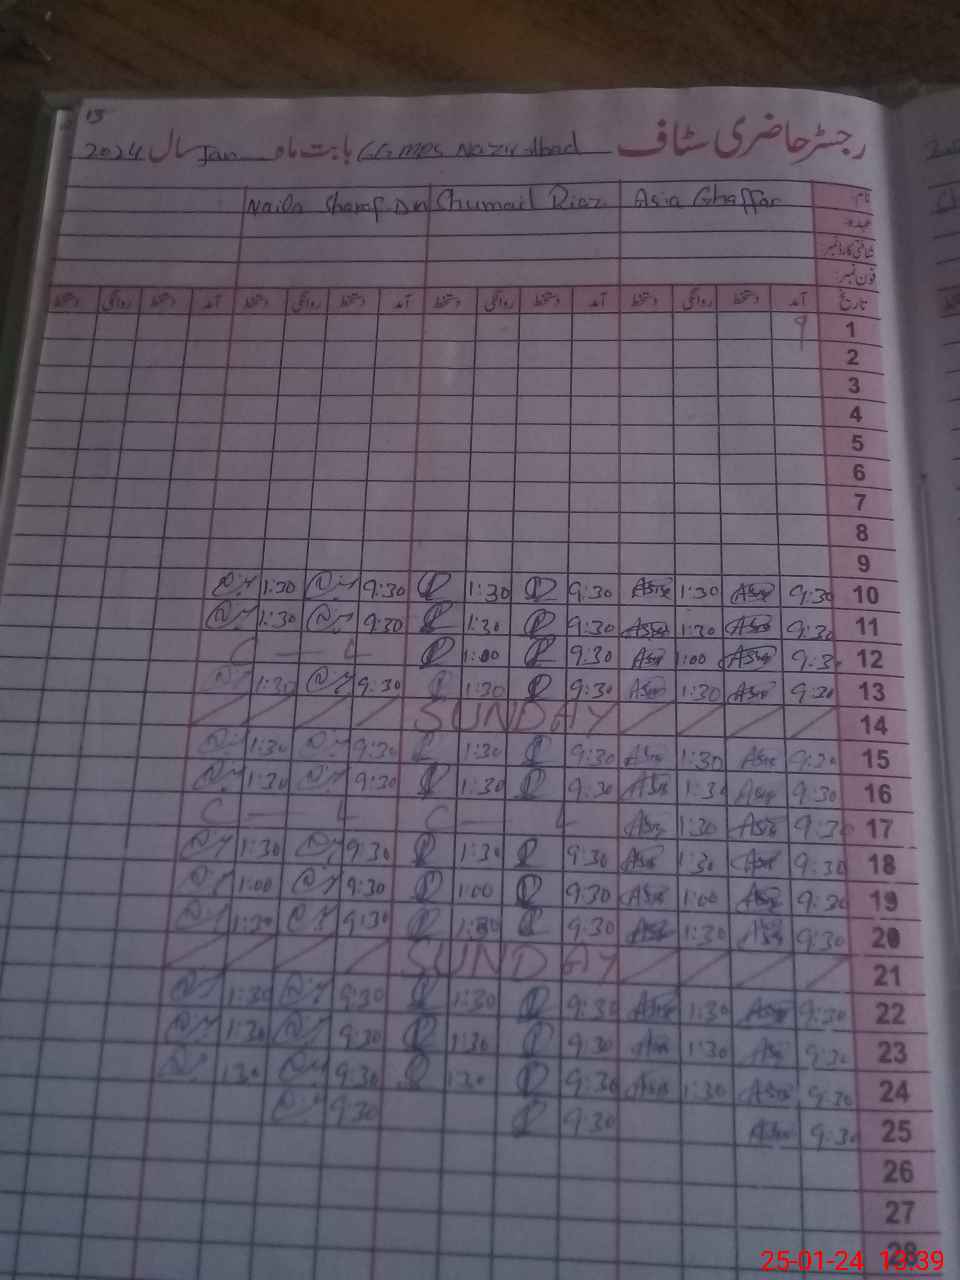 15
رجسٹر حاضری سٹاف GGMPS Nazir Abad بابت ماہ Jan سال 2024
نام Asia Ghaffar Shumail Riaz Naila Sharaf Din
عہدہ
شناختی کارڈ نمبر
فون نمبر
تاریخ آمد دستخط روانگی دستخط آمد دستخط روانگی دستخط آمد دستخط روانگی دستخط آمد دستخط روانگی دستخط
1 9
2
3
4
5
6
7
8
9
10 9:30 Asia 1:30 Asia 9:30 1:30 9:30 1:30
11 9:30 Asia 1:30 Asia 9:30 1:30 9:30 1:30
12 9:30 Asia 1:00 Asia 9:30 1:00 C — L
13 9:30 Asia 1:30 Asia 9:30 1:30 9:30 1:30
14 SUNDAY
15 9:30 Asia 1:30 Asia 9:30 1:30 9:30 1:30
16 9:30 Asia 1:30 Asia 9:30 1:30 9:30 1:30
17 9:30 Asia 1:30 Asia C — L C — L
18 9:30 Asia 1:30 Asia 9:30 1:30 9:30 1:30
19 9:30 Asia 1:00 Asia 9:30 1:00 9:30 1:00
20 9:30 Asia 1:30 Asia 9:30 1:30 9:30 1:30
21 SUNDAY
22 9:30 Asia 1:30 Asia 9:30 1:30 9:30 1:30
23 9:30 Asia 1:30 Asia 9:30 1:30 9:30 1:30
24 9:30 Asia 1:30 Asia 9:30 1:30 9:30 1:30
25 9:30 Asia 9:30 9:30
26
27
28
25-01-24 13:39